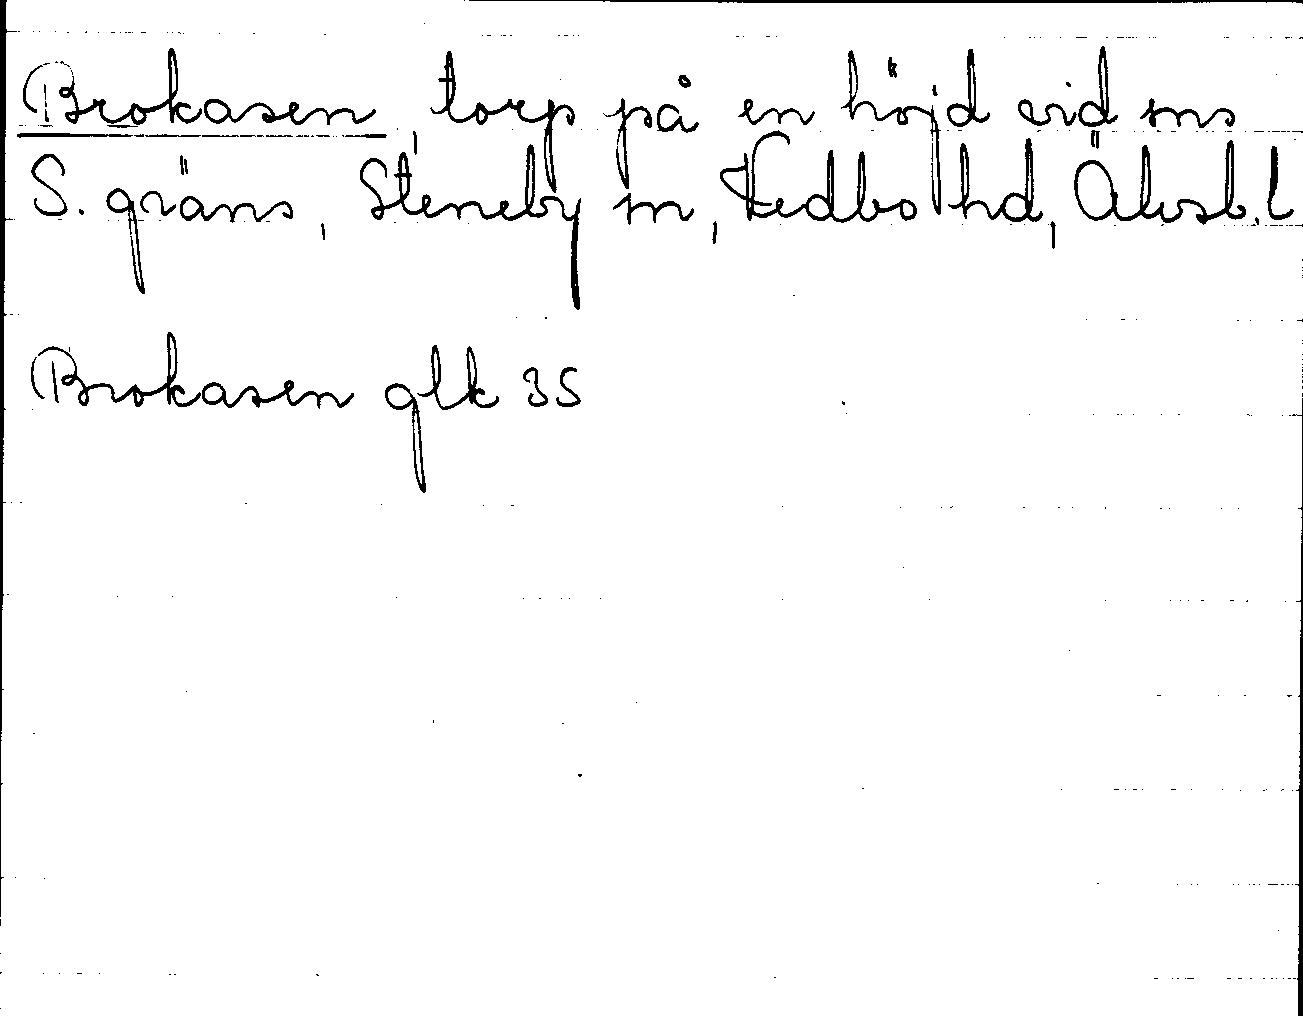 Brokasen, torp på en höjd vid sns
S. gräns, Steneby sn, Vedbo hd, Älvsb. l
Brokasen glk 35